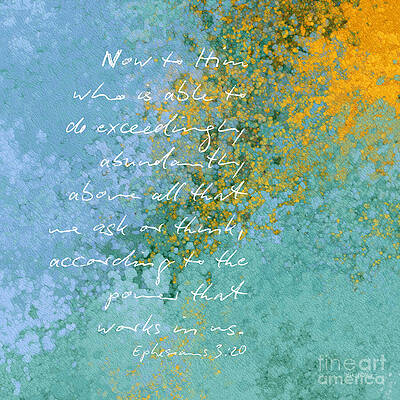 Now to Him
who is able to
do exceedingly
abundantly
above all that
we ask or think,
according to the
power that
works in us.
Ephesians 3:20
fine art
america